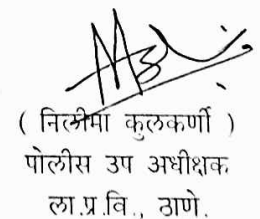 ( निलीमा कुलकर्णी )
पोलीस उप अधीक्षक
ला.प्र.वि., ठाणे.